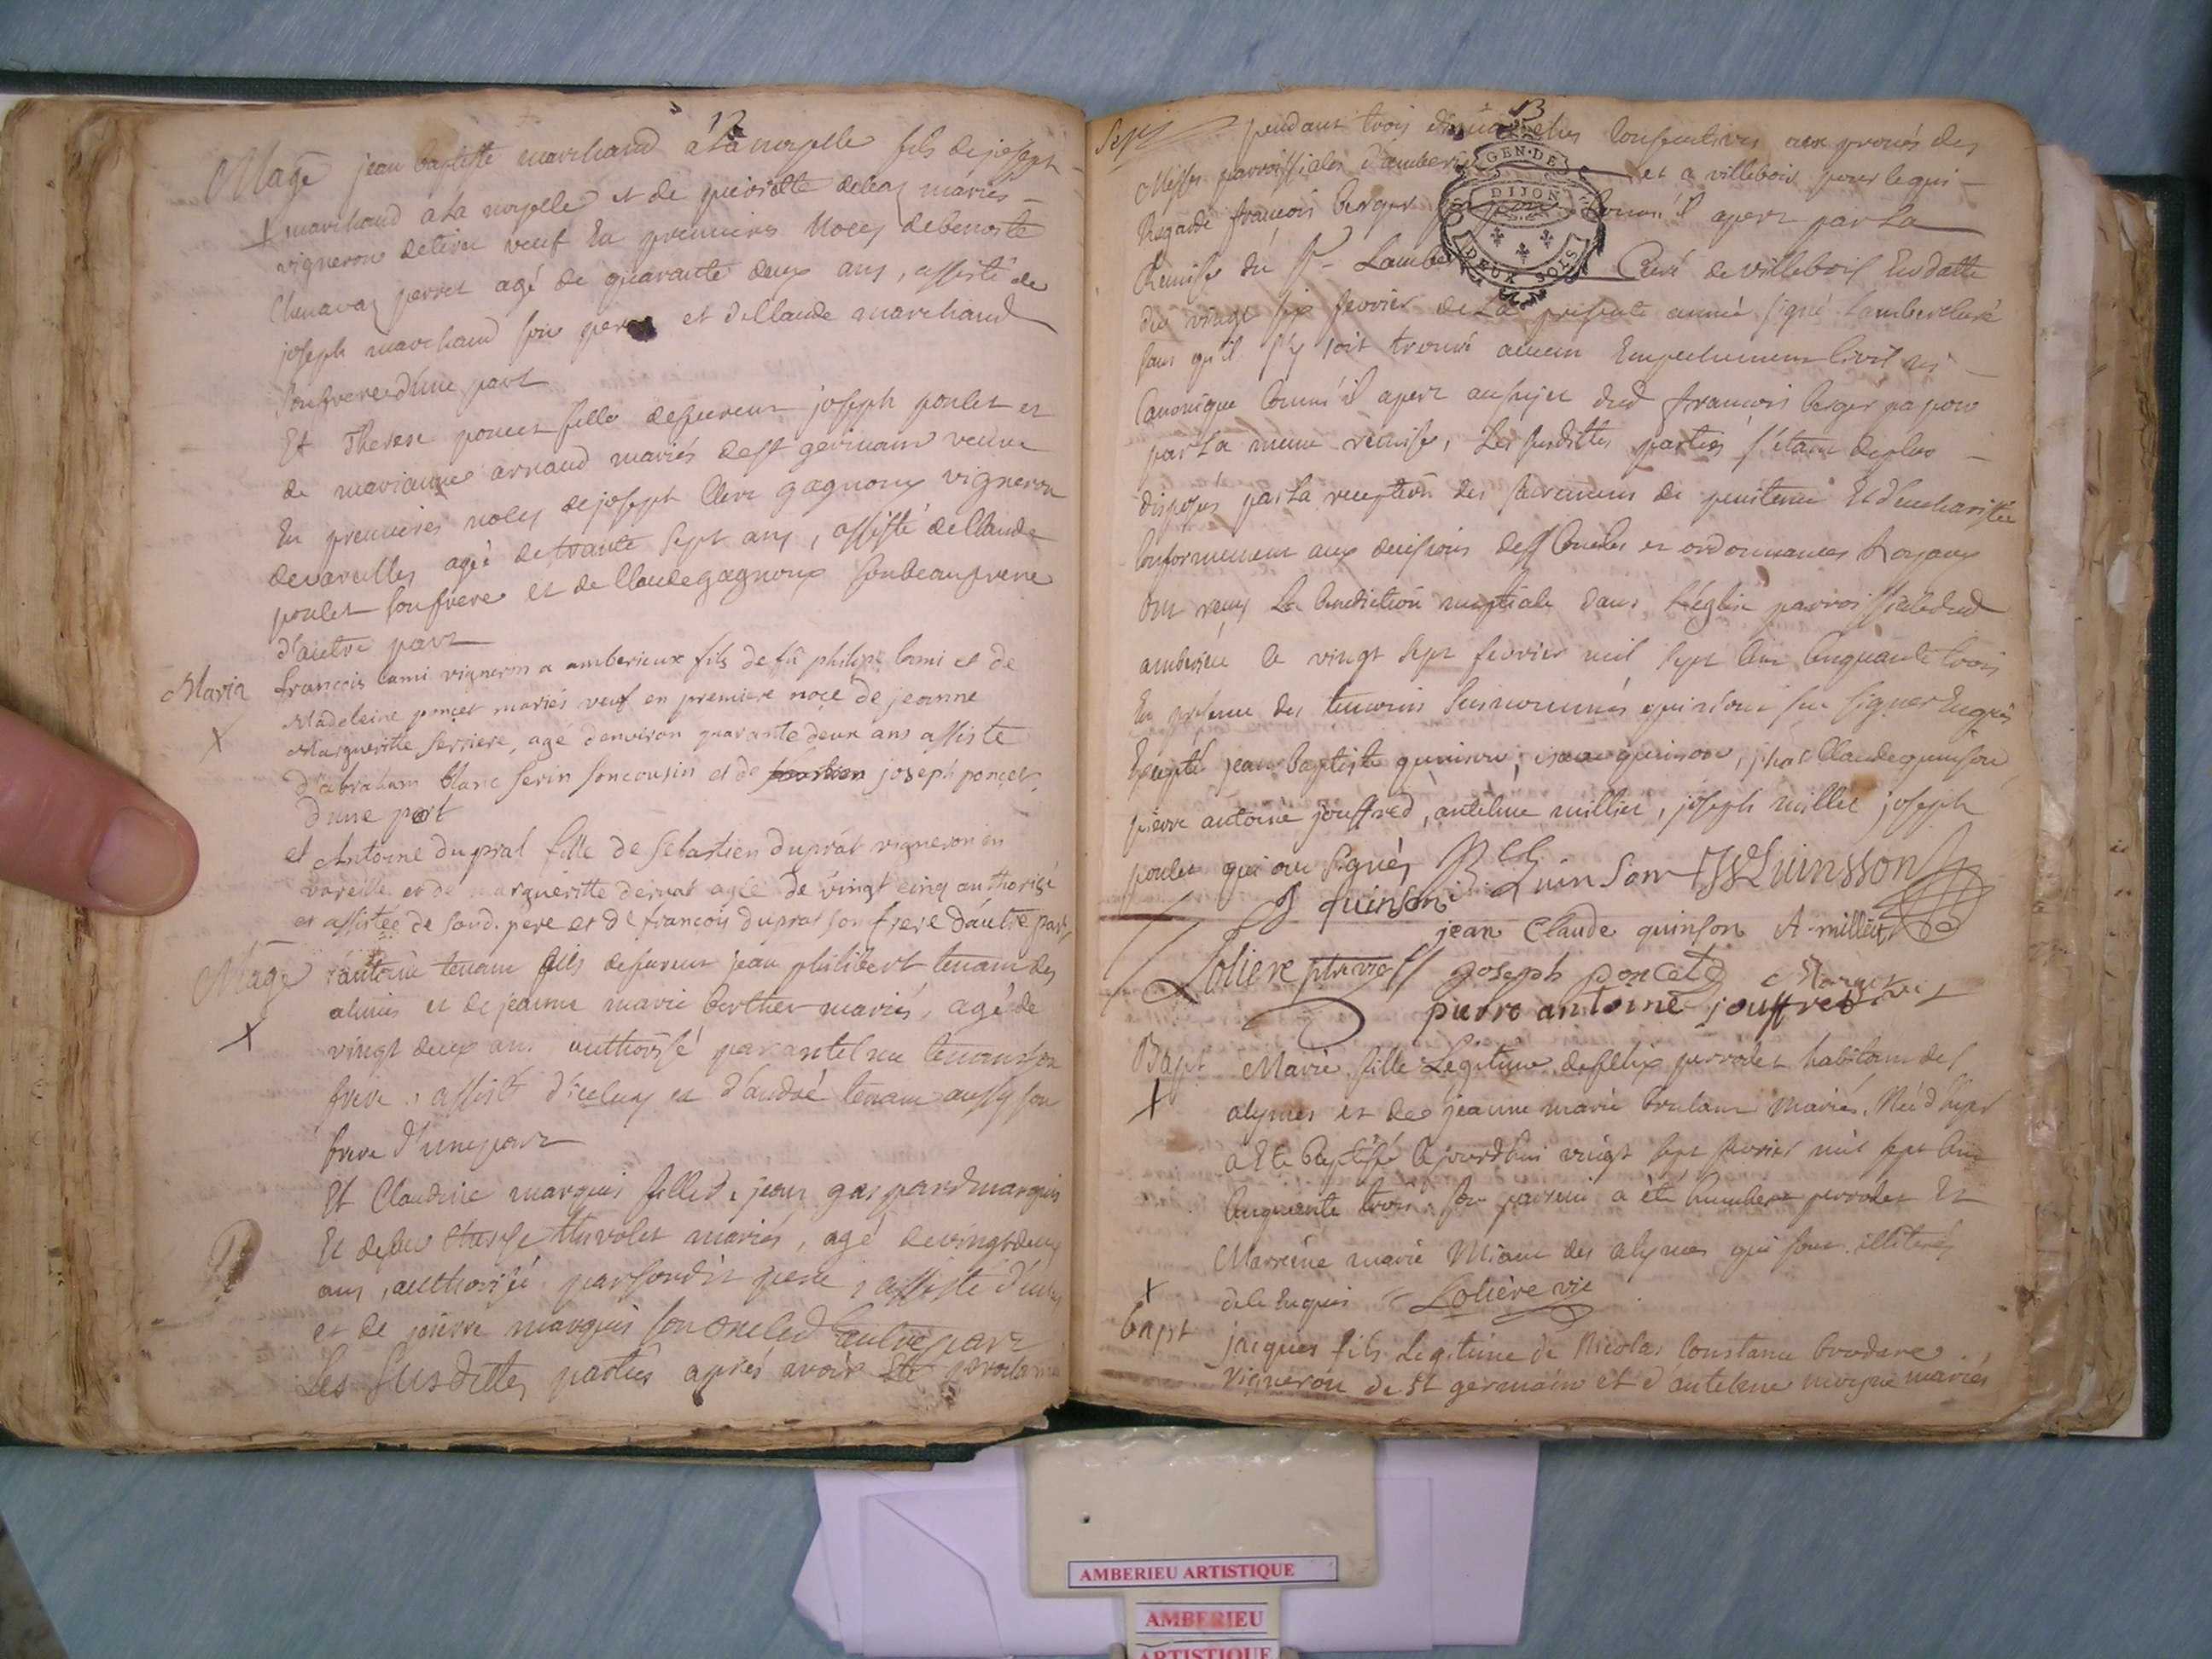 12
Mage jean baptiste marchand à la noyelle fils de joseph
marchand a la noyelle et de pierrette deleaz mariés
vigneron detiru veuf En premieres Noces debenoite
Chenavaz perret agé de quarante deux ans, assisté de
joseph marchand son pere et deClaude marchand
Son frere d'une part
Et Therese poncet fille defeu joseph poulet et
de marianne arnaud mariés de st germain veuve
En premieres noces de joseph Clerc gagnoux vigneron
devareilles agée de trante sept ans, assisté de Claude
poulet son frere et de Claude gagnoux son beau frere
d'autre part
Maria françois lami vigneron a amberieux fils de fu philipe lami et de
Madeleine ponçet mariés veuf en premiere noçe de jeanne
Margueritte serriere, agé denviron quarante deux ans assiste
d'abraham blanc serin son cousin et de joseph ponçet,
dune part
et Antoine du prat fille de sebastien duprat vigneron en
vareille et de margueritte dernat agée de vingt cinq an thorisé
et assistée de sond. pere et de francois duprat son frere d'autre part
Mage antoine tenam fils defureur jean philibert tenam des
alimes et de jeanne marie berthet mariés, agé de
vingt deux ans authorisé par antelme tenam son
frere, assisté d'iceluy et d'andré tenam aussy son
frere d'une part
Et Claudine marquis fille de jean gaspard marquis
Et defeu thurolet mariés, agé devingt deux
ans, authorisé par sondit pere, assisté d'iceluy
et de pierre marquis son oncle d'autre part
Les Susdittes parties après avoir Eté proclamé
13
Sept pendant trois dimanches Consecutives aux prônes des
Messes parroissiales d'amberieu et a villebois pour le qui
Regarde françois berger Comm'il apert par la
Remise du Sr Lambert Curé de villebois En datte
du vingt six fevrier de La presente année signé Lambert curé
sans qu'il s'y soit trouvé aucun Empechement Civil ni
Canonique Comm'il apert au sujet dud francois berger papon
par la meme remise, Les susdittes parties s'etant deplus
disposés par la reception des sacremens de penitence Et d'eucharistie
Conformement aux decisions des Conciles et ordonnances Royaux
ont reçus La benediction nuptiale dans L'église parroissiale dud
amberieu le vingt sept fevrier mil sept Cent Cinquante trois
En presence des temoins susnommés qui n'ont sçu signer Enquis
Excepté jean baptiste quinson, isaac quinson, jean Claude quinson
pierre antoine jouffred, antelme millier, joseph millet joseph
poulet qui ont signés
J quinson B Quinson JB Quinsson
jean Claude quinson A. millet
Loliere ptre vic joseph poncet Marquis
pierre antoine jouffred
Bapt Marie fille Legitime defelix perrodet habitant des
alymes et de jeanne marie brulant Mariés, Née d'hier
a Eté baptisé ce jourd'hui vingt sept fevrier mil sept Cent
Cinquante trois. Son parrein a été humbert perrodet Et
Marreine marie Miam des alymes qui sont illiterés
dele Enquis Lolière vic
bapt jacques fils Legitime de Nicolas Constanu brodare
vigneron de st germain et d'antelme moyne mariés
GEN·DE
DIJON
DEUX SOLS
AMBERIEU ARTISTIQUE
AMBERIEU
ARTISTIQUE